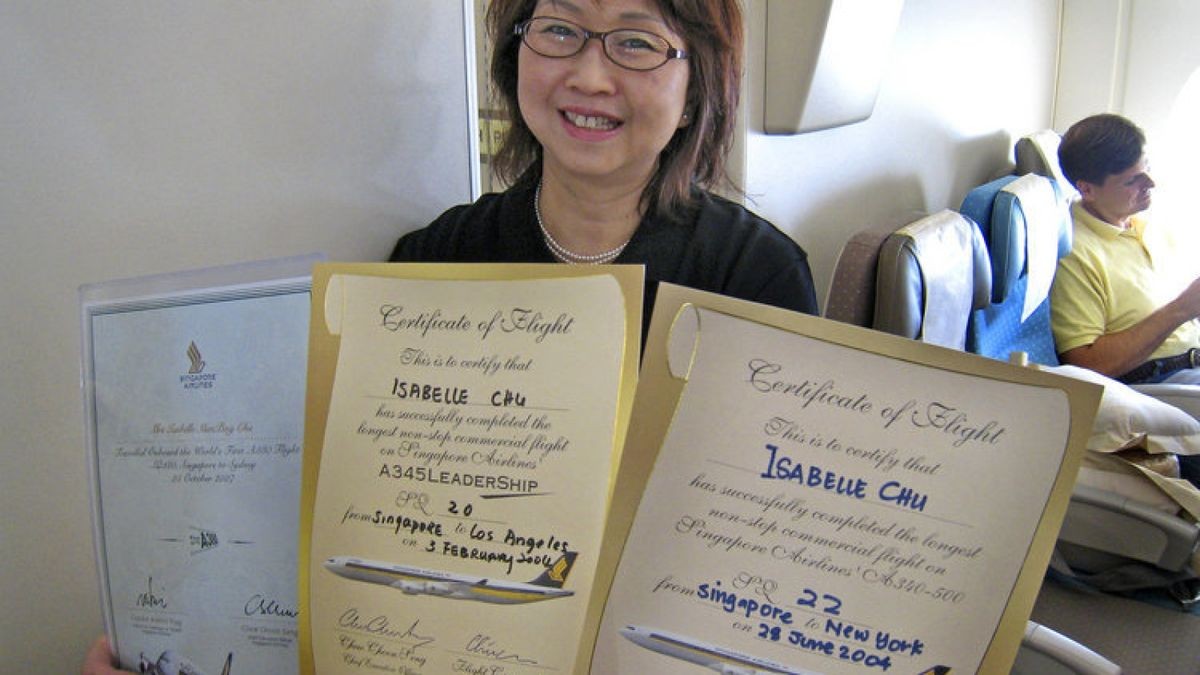 SINGAPORE
AIRLINES
Mrs Isabelle
Travelled Onboard the World's First A380 Flight
Singapore to Sydney
25 October 2007
A380
Certificate of Flight
This is to certify that
ISABELLE CHU
has successfully completed the
longest non-stop commercial flight
on Singapore Airlines'
A345LEADERSHIP
SQ 20
from Singapore to Los Angeles
on 3 FEBRUARY 2004
Chew Choon Seng
Chief Executive
Flight
Certificate of Flight
This is to certify that
ISABELLE CHU
has successfully completed the longest
non-stop commercial flight on
Singapore Airlines' A340-500
SQ 22
from Singapore to New York
on 28 June 2004